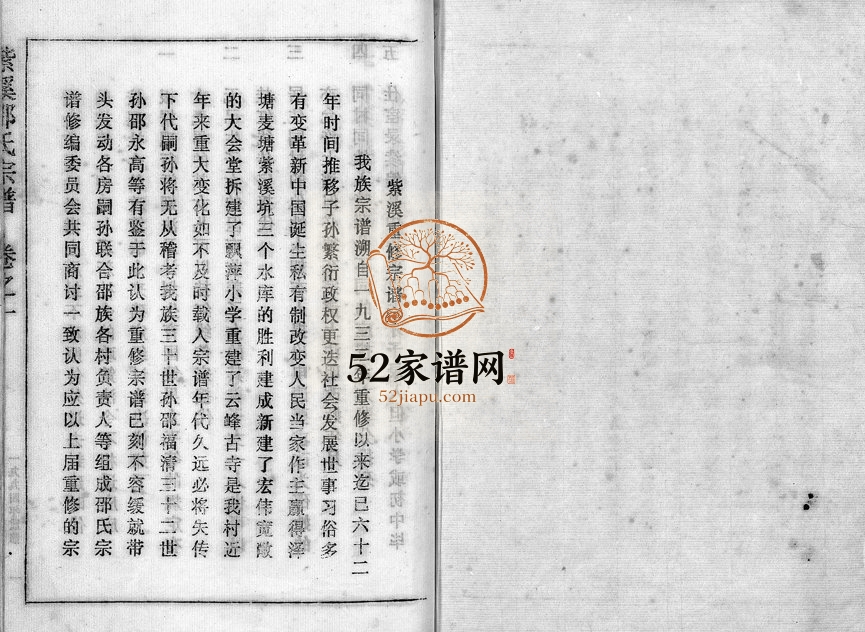 紫溪重修宗谱
我族宗谱溯自一九三三年重修以来迄已六十二
年时间推移子孙繁衍政权更迭社会发展世事习俗多
有变革新中国诞生私有制改变人民当家作主赢得泽
塘麦塘紫溪坑三个水库的胜利建成新建了宏伟宽敞
的大会堂拆建了飘萍小学重建了云峰古寺是我村近
年来重大变化如不及时载入宗谱年代久远必将失传
下代嗣孙将无从稽考我族三十世孙邵福清三十二世
孙邵永高等有鉴于此认为重修宗谱已刻不容缓就带
头发动各房嗣孙联合邵族各村负责人等组成邵氏宗
谱修编委员会共同商讨一致认为应以上届重修的宗
紫溪邵氏宗谱 卷之一
52家谱网
52jiapu.com